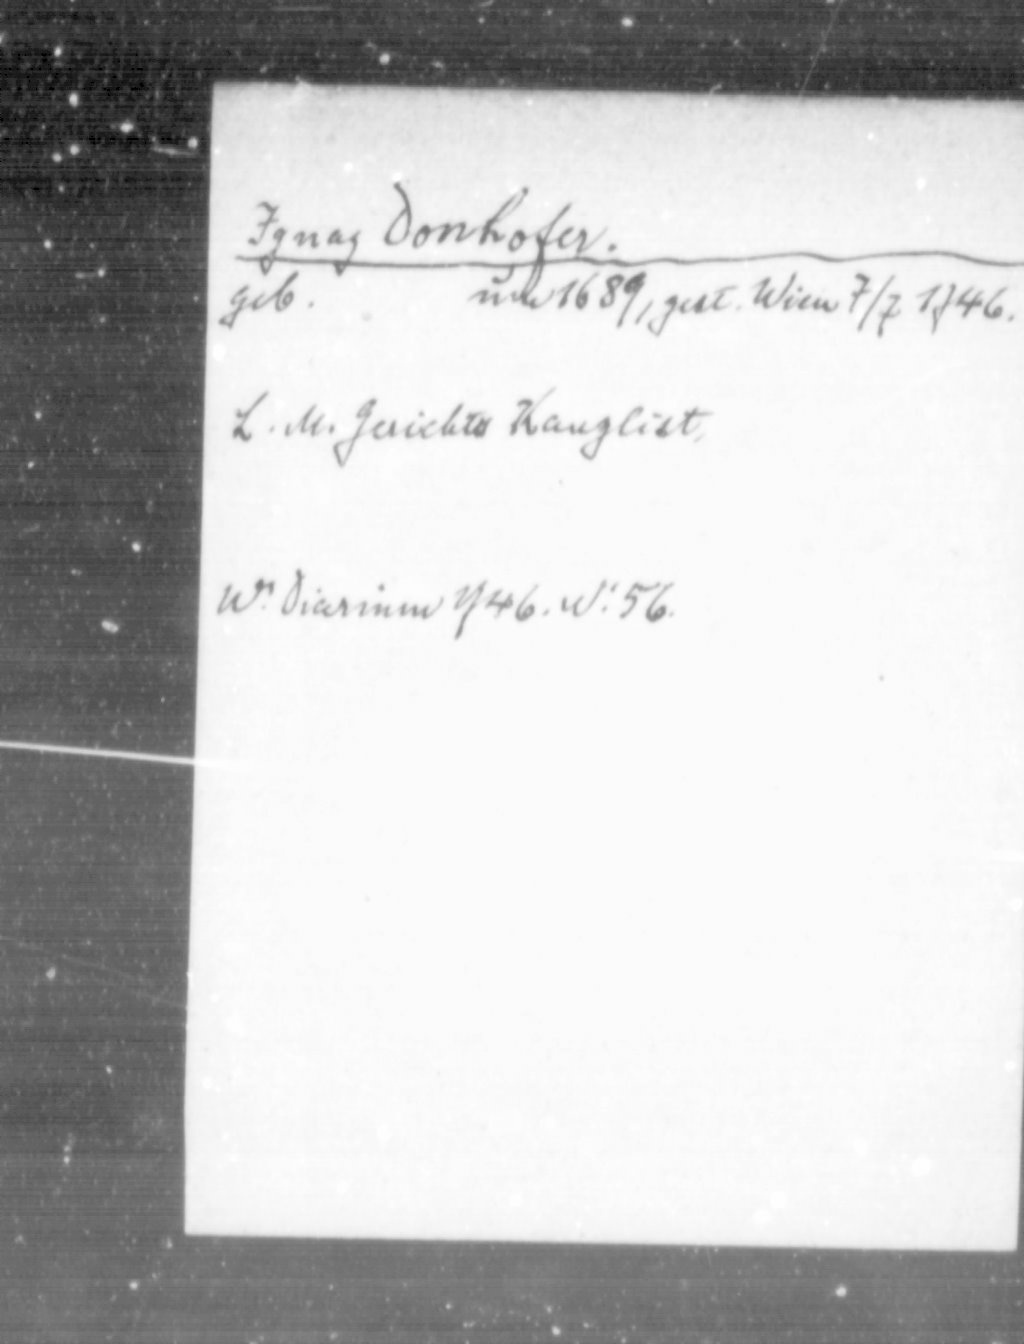 Ignaz Donhofer.
geb. um 1689, gest. Wien 7/7 1746.
L. M. Gerichts Kanzlist,
Wr. Diarium 1746. Nr. 56.